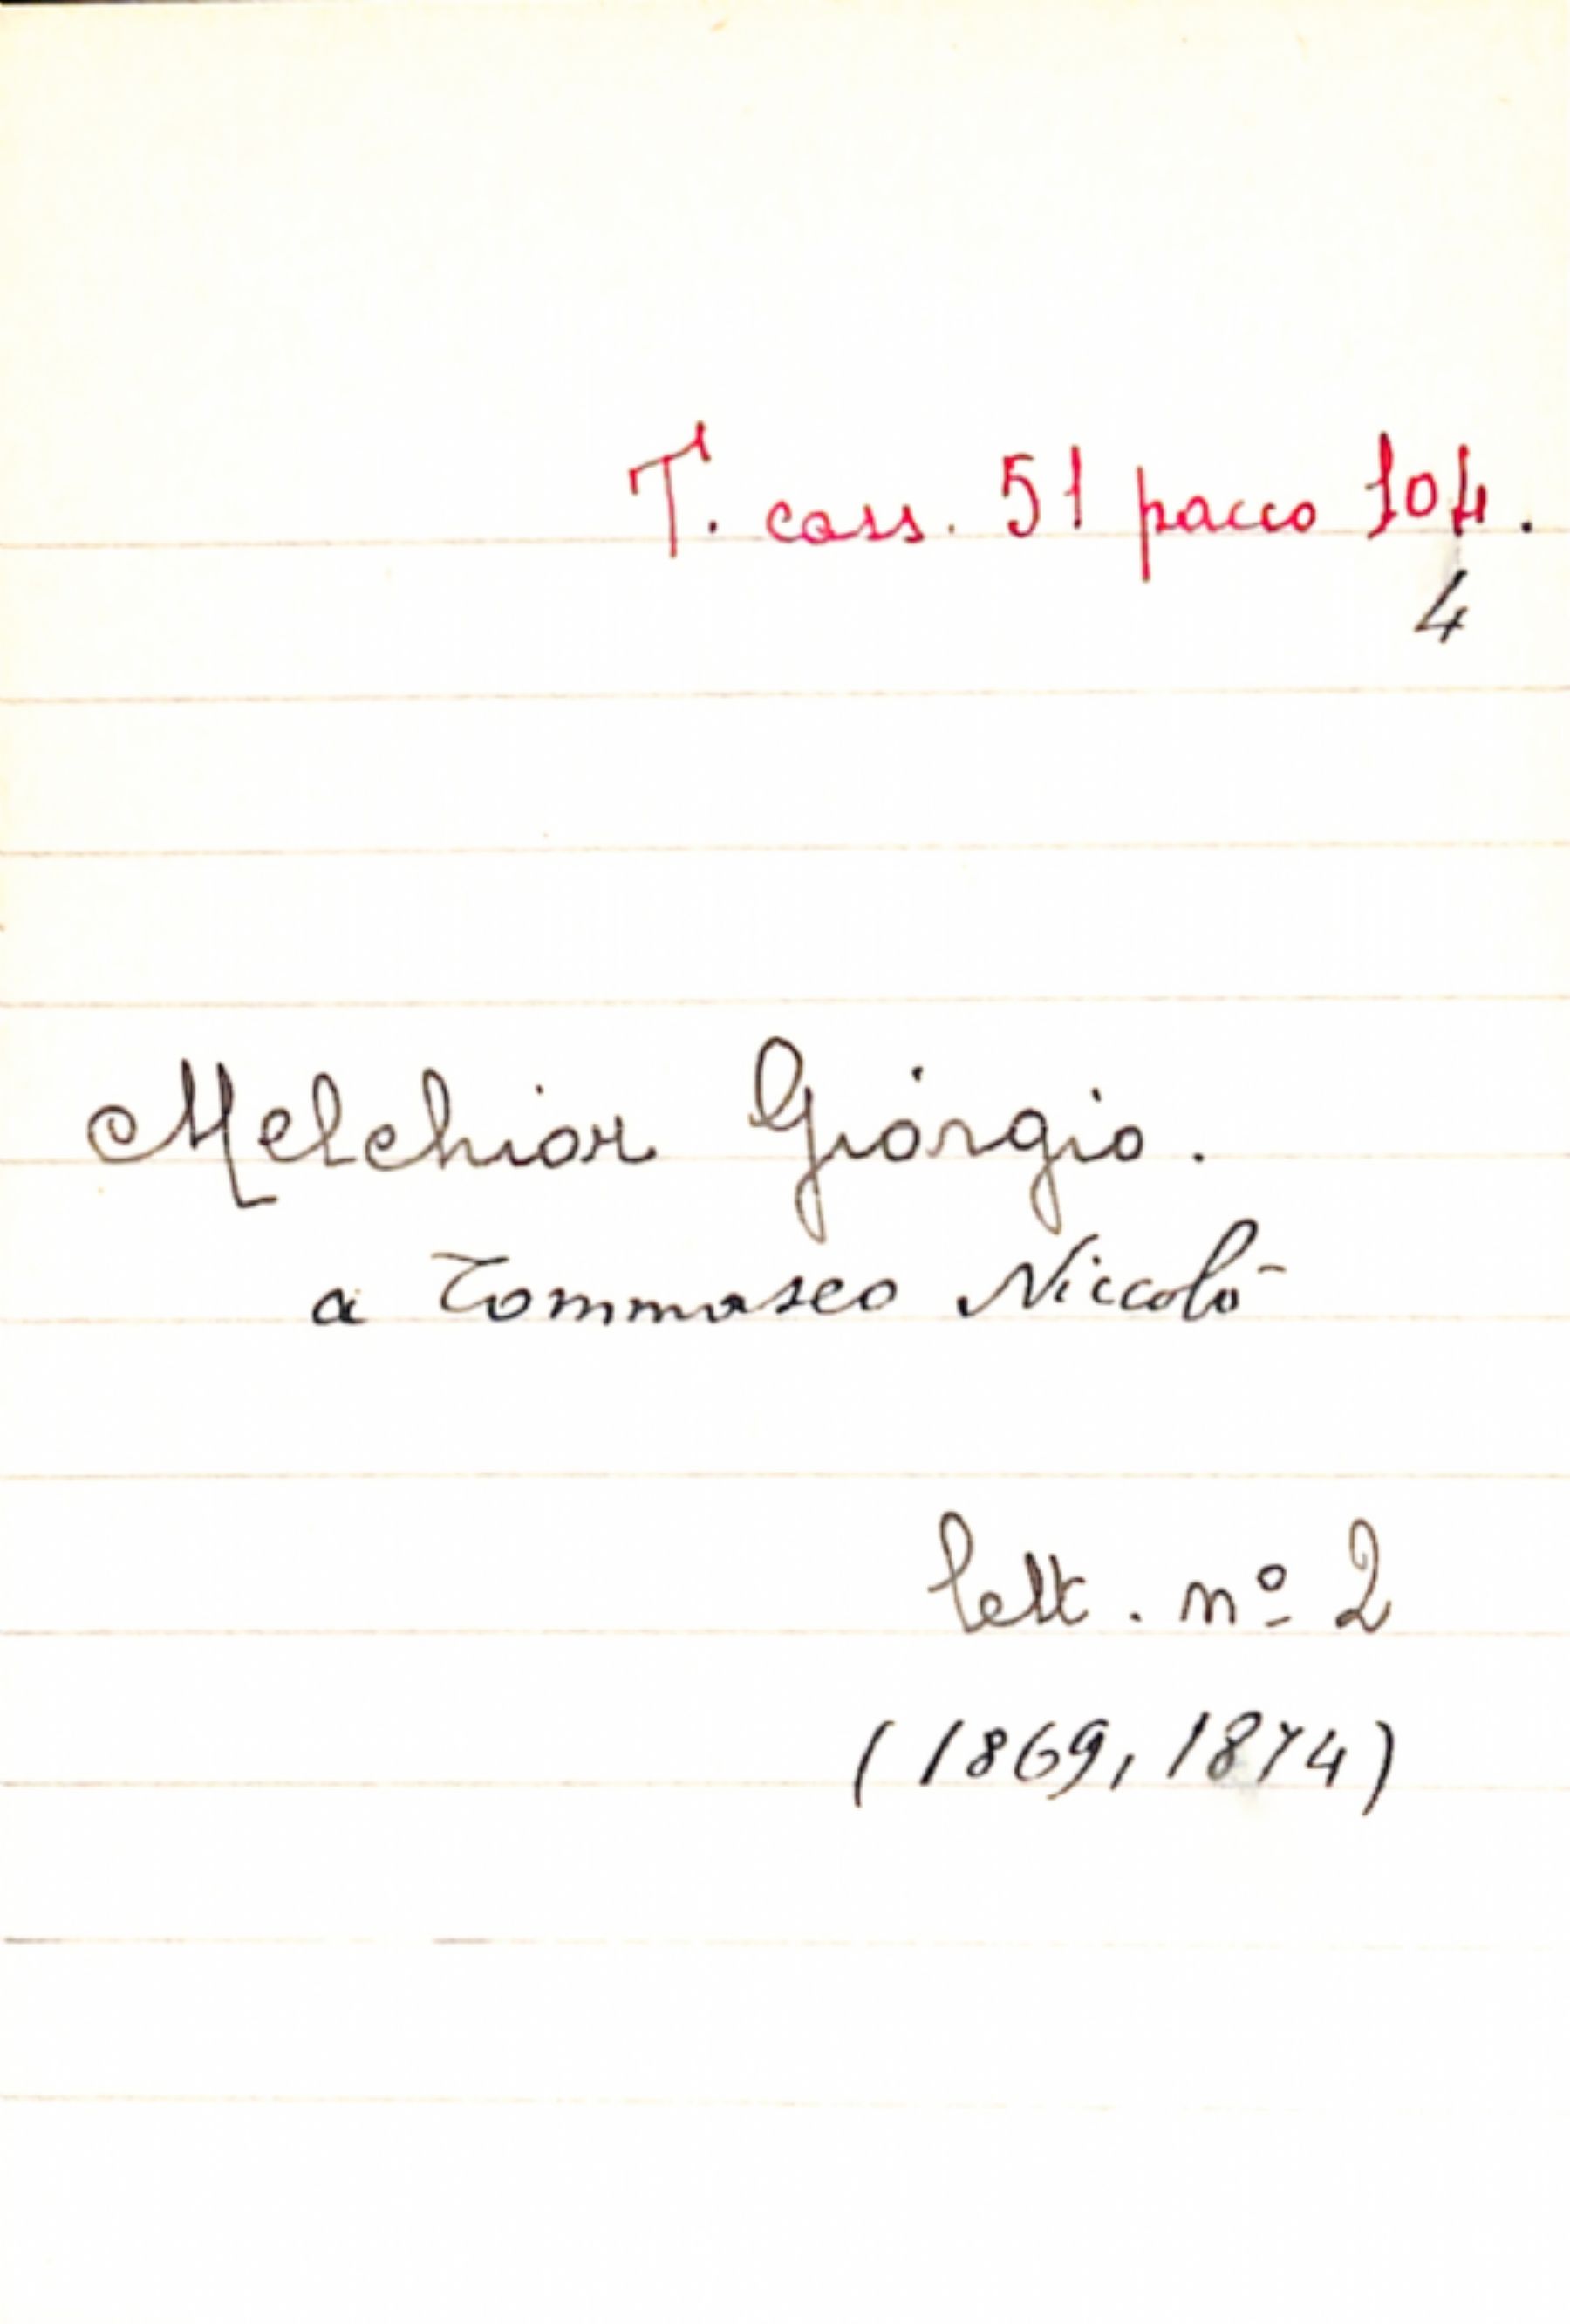 T. cass. 51 pacco 104.
4
Melchior Giorgio.
a Tommaseo Niccolò
lett. nº 2
(1869, 1874)